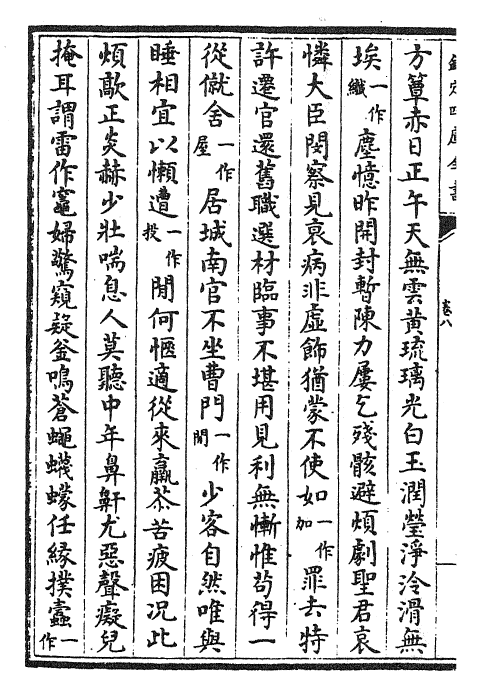 欽定四庫全書
卷八
方簟赤日正午天無雲黃琉璃光白玉潤瑩淨冷滑無
埃一作纖塵憶昨開封暫陳力屢乞殘骸避煩劇聖君哀
憐大臣閔察見衰病非虛飾猶蒙不使如一作加罪去特
許遷官還舊職選材臨事不堪用見利無慚惟茍得一
從僦舍一作屋居城南官不坐曹門一作閒少客自然唯與
睡相宜以懶遭一作投閒何愜適從來羸苶苦疲困況此
煩歊正炎赫少壯喘息人莫聽中年鼻鼾尤惡聲癡兒
掩耳謂雷作竈婦驚窺疑釡鳴蒼蠅蠛蠓任緣撲蠹一作